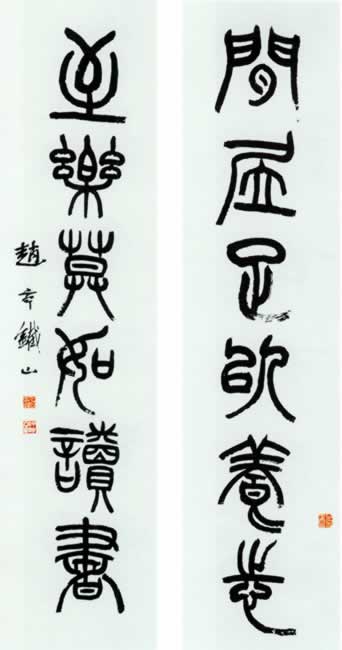 閒居足以養志
至樂莫如讀書
趙鐵山